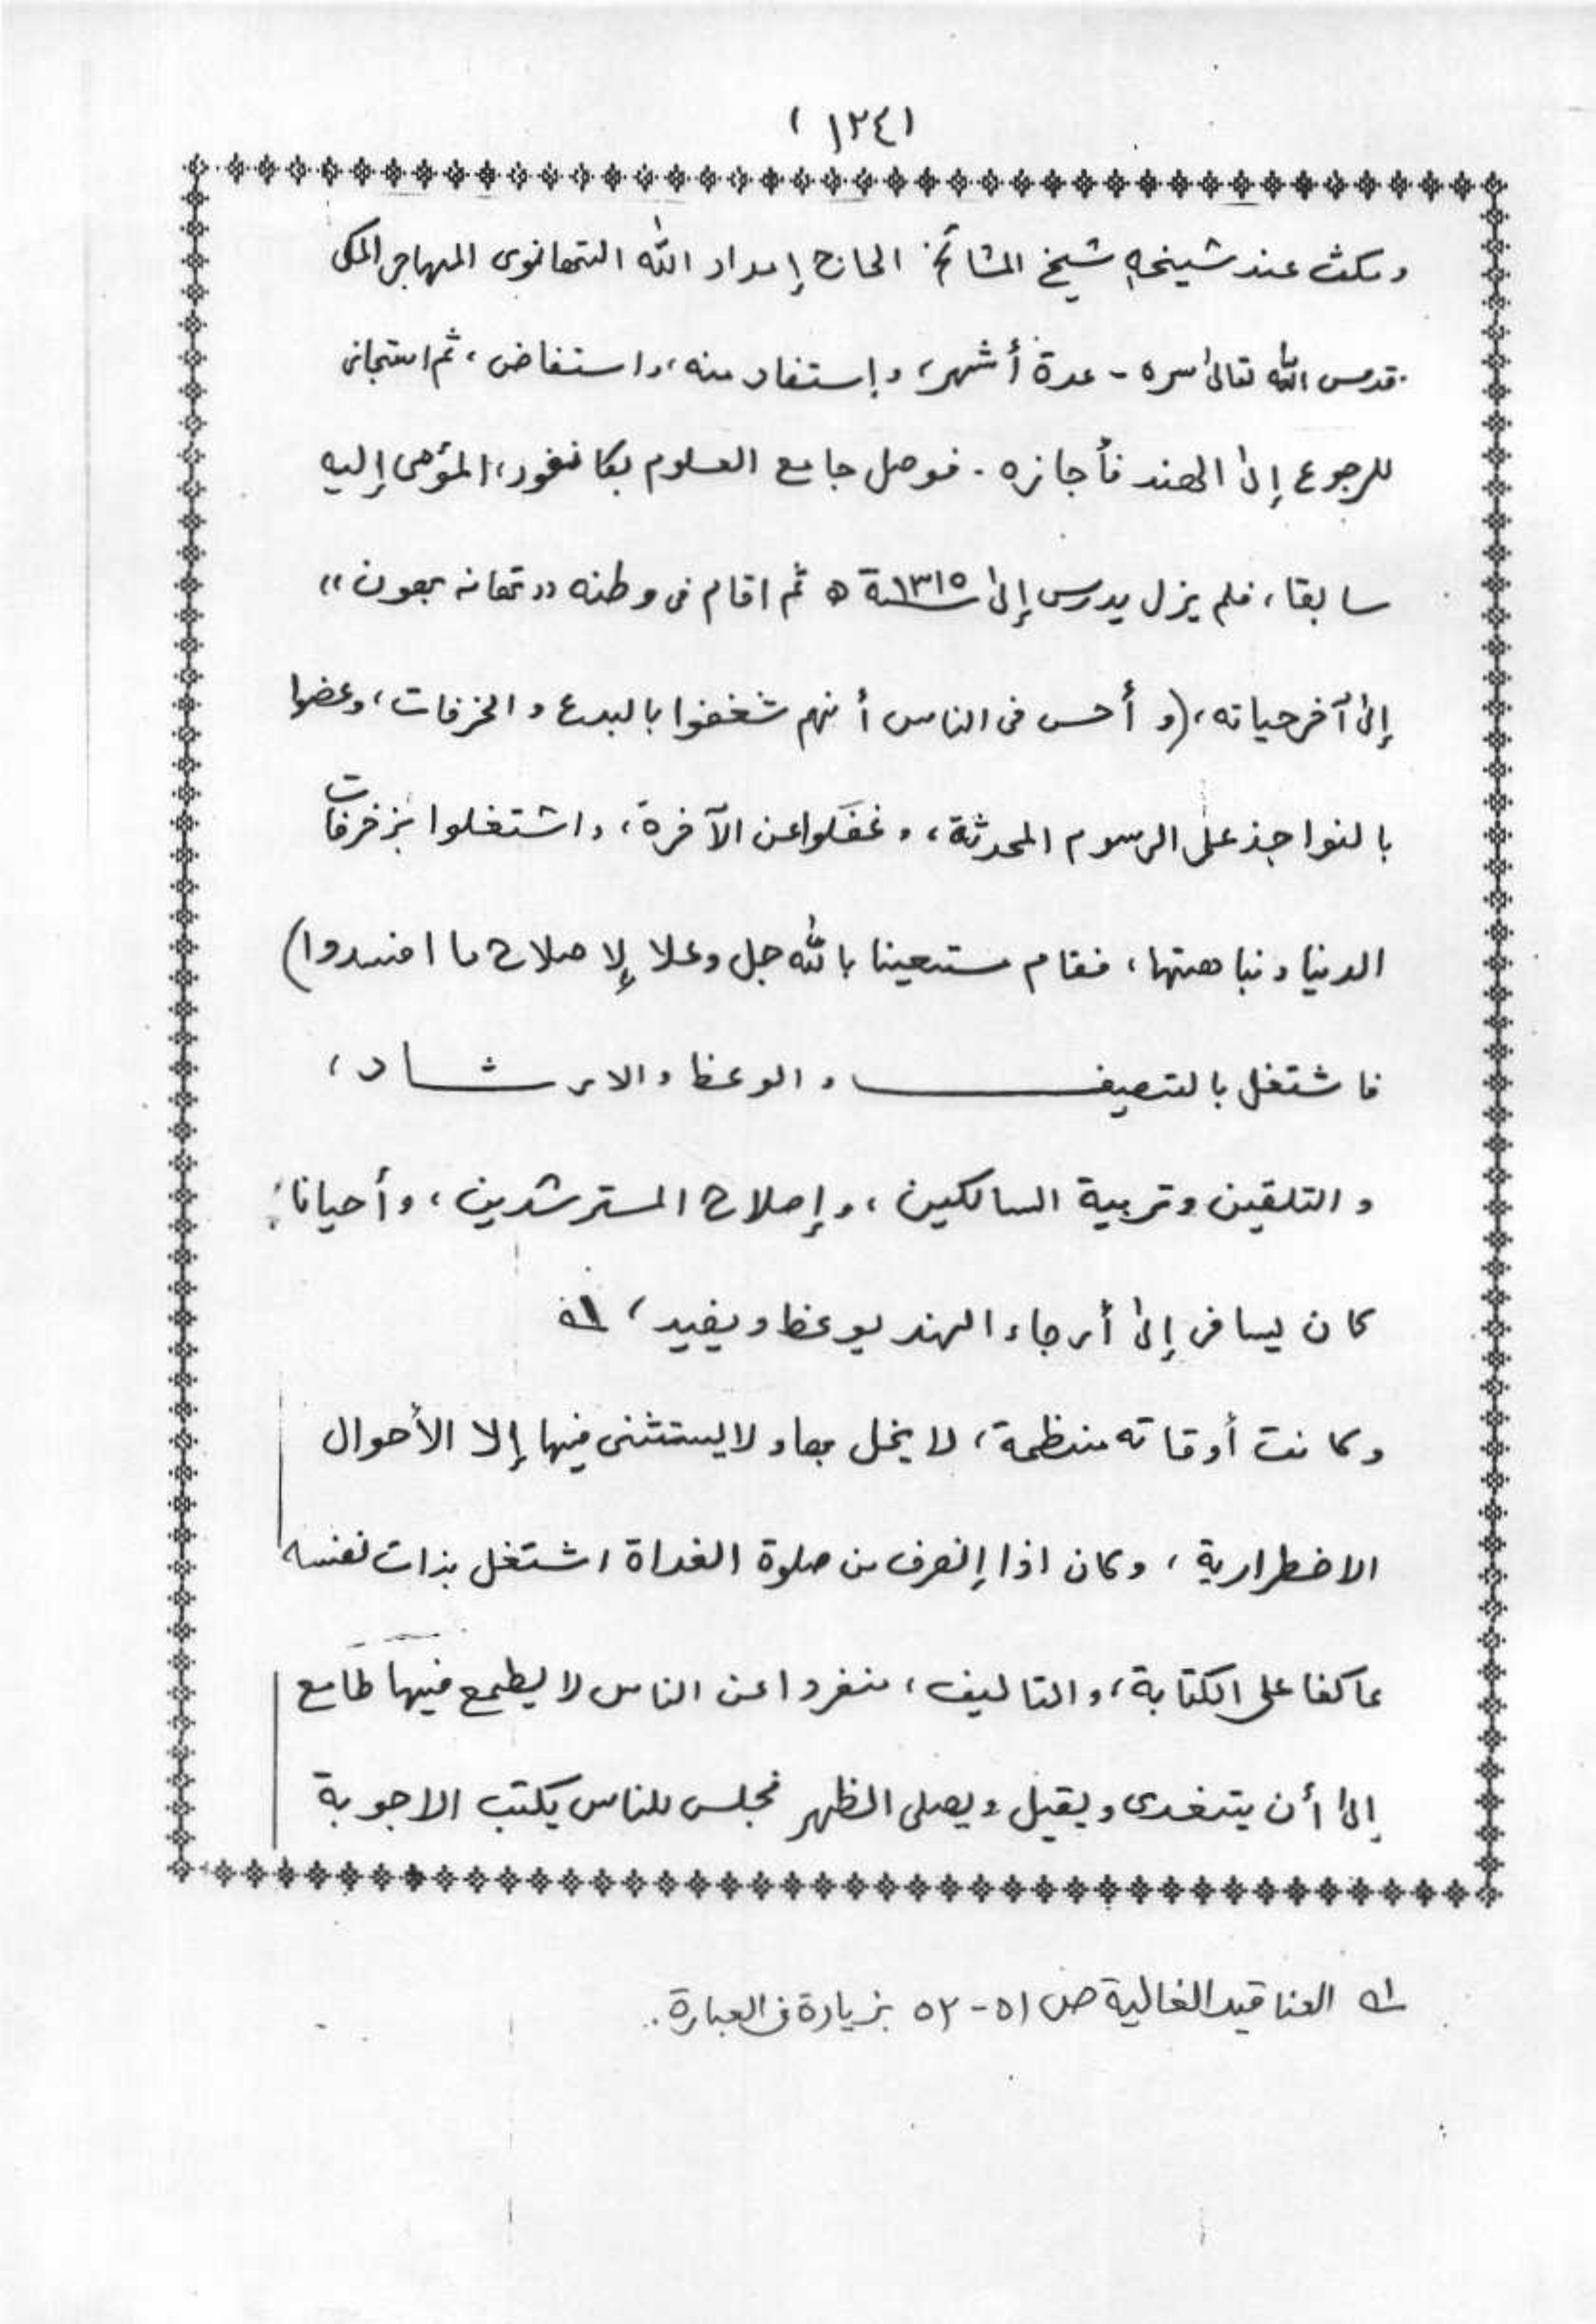 (١٢٤)
ومكث عند شيخه شيخ المشائخ الحاج إمداد الله التهانوى المهاجر المكى
قدس الله تعالىٰ سره - عدة أشهر، وإستفاد منه، واستفاض، ثم استجاز
للرجوع إلىٰ الهند فأجازه . فوصل جامع العلوم بكانفور، المؤمى إليه
سابقا، فلم يزل يدرس إلىٰ سنة ١٣١٥ ه ثم اقام فى وطنه «تهانه بهون»
إلىٰ آخر حياته، (و أحس فى الناس أنهم شغفوا بالبدع و الخرفات، وعضوا
بالنواجذ على الرسوم المحدثة، وغفَلوا عن الآخرة، واشتغلوا بزخرفات
الدنيا ونباهتها، فقام مستعينا بالله جل وعلا لإصلاح ما افسدوا)
فاشتغل بالتصيف والوعظ والارشاد،
والتلقين وتربية السالكين، وإصلاح المسترشدين، وأحيانا
كان يسافر إلىٰ أرجاء الهند يوعظ ويفيد، ١ه
وكانت أوقاته منظمة، لا يخل بها ولا يستثنى فيها إلا الأحوال
الاضطرارية، وكان اذا إنصرف من صلوة الغداة اشتغل بذات نفسه
عاكفا على الكتابة، والتاليف، منفردا عن الناس لا يطمع فيها طامع
إلىٰ أن يتغدى ويقيل ويصلى الظهر فجلس للناس يكتب الاجوبة
١ه العناقيد الغالية ص ٥١-٥٢ بزيادة فى العبارة.